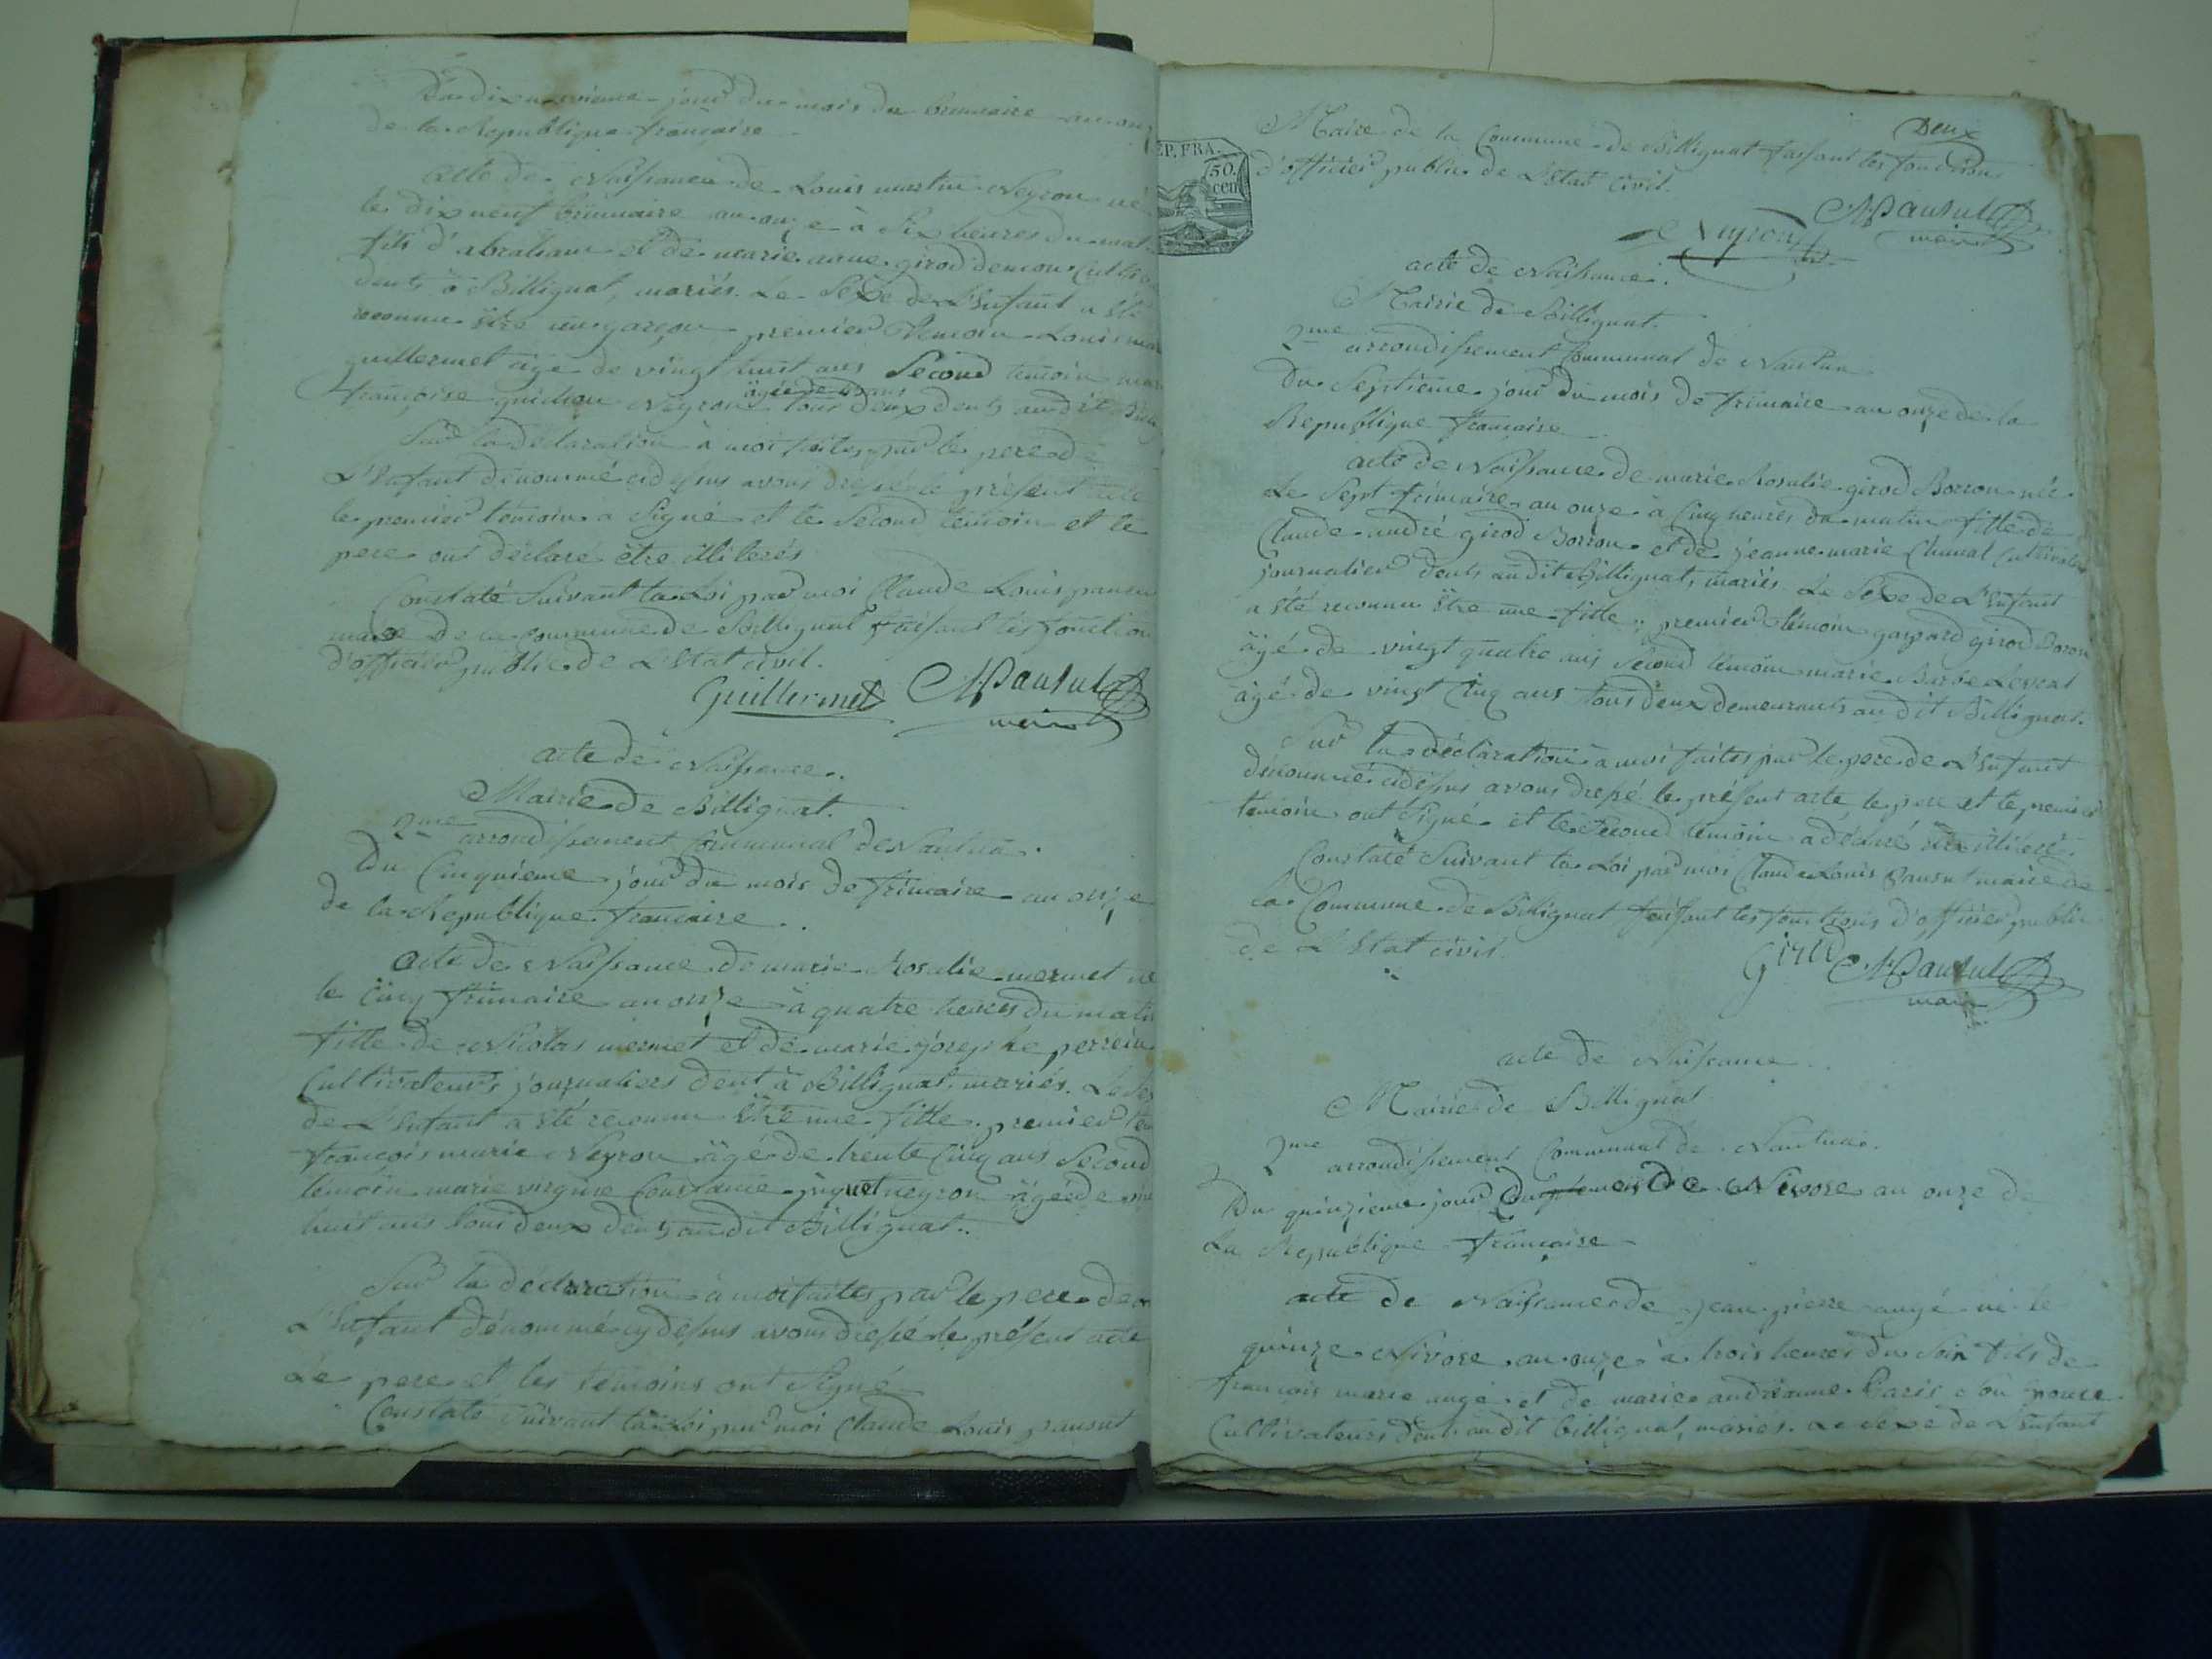 Du dix neuvieme jour du mois du brumaire an onz
de la Republique française
acte de Naissance de Louis martin Neyron né
le dix neuf brumaire an onze à six heures du mat
fils d'abraham et de marie anne girod demon Cultiv
dents à Billignat, mariés. Le Sexe de L'Enfant a été
reconnu être un garçon premier temoin Louis mar
guillermet agé de vingt huit ans Second temoin mar
agée de ans
françoise guichon Neyron tous deux dents audit Billig
Sur la déclaration à moi faites par le pere de
L'Enfant dénommé cidessus avons dressé le présent acte
le premier temoin a Signé et le Second temoin et le
pere ont déclaré être illiterés
Constaté Suivant la Loi par moi Claude Louis pansu
maire de la commune de Billignat faisant les fonction
d'officier public de L'Etat civil.
Guillermet Pansut
maire
acte de Naissance.
Mairie de Billignat.
2me arrondissement Communal de Nantua.
Du Cinquième jour du mois de frimaire an onze
de la Republique francaire.
Acte de Naissance de marie Rosalie mermet né
le Cinq frimaire an onze à quatre heures du matin
fille de Nicolas mermet et de marie josephe perrein
Cultivateurs journaliers dent à Billignat mariés. Le Sex
de L'Enfant a été reconnu être une fille. premier tem
françois marie Neyron âgé de trente Cinq ans Second
témoin marie virginie Constance juquet neyron âgée de vin
huit ans tous deux dents audit Billignat.
Sur la déclaration à moi faites par le pere de
L'Enfant dénommé cy dessus avons dressé le présent acte
Le pere et les temoins ont Signé
Constaté Suivant la Loi par moi Claude Louis pansut
Deux
EP. FRA.
50.
cen
Maire de la Commune de Billignat faisant les fonctions
d'officier public de L'Etat Civil.
Neyron Pansut
maire
acte de Naissance.
Mairie de Billignat.
2me arrondissement Communal de Nantua
Du Septieme jour du mois de frimaire an onze de la
Republique francaise
acte de Naissance de marie Rosalie girod Borron née
Le Sept frimaire an onze à Cinq heures du matin fille de
Claude andré girod Borron et de jeanne marie Chanal Cultivateur
journalier dents audit Billignat, mariés. Le Sexe de L'Enfant
a été reconnu être une fille, premier témoin gaspard girod Boron
âgé de vingt quatre ans Second témoin marie Barbe Levrat
âgé de vingt Cinq ans tous deux demeurants audit Billignat.
Sur la déclaration à moi faites par le pere de L'Enfant
dénommé cidessus avons dressé le présent acte, le pere et le premier
temoin ont Signé et le Second temoin a déclaré être illiteré.
Constaté Suivant la Loi par moi Claude Louis Pansut maire de
La Commune de Billignat faisant les fonctions d'officier public
de L'Etat civil.
Girod Pansut
maire
acte de Naissance.
Mairie de Billignat
2me arrondissement Communal de Nantua.
Du quinzieme jour du mois de Nivose an onze de
La Republique française
acte de Naissance de jean pierre augé né le
quinze Nivose an onze à trois heures du Soir fils de
françois marie augé et de marie andréanne Paris son épouse
Cultivateurs dents audit billignat, mariés. Le sexe de L'Enfant